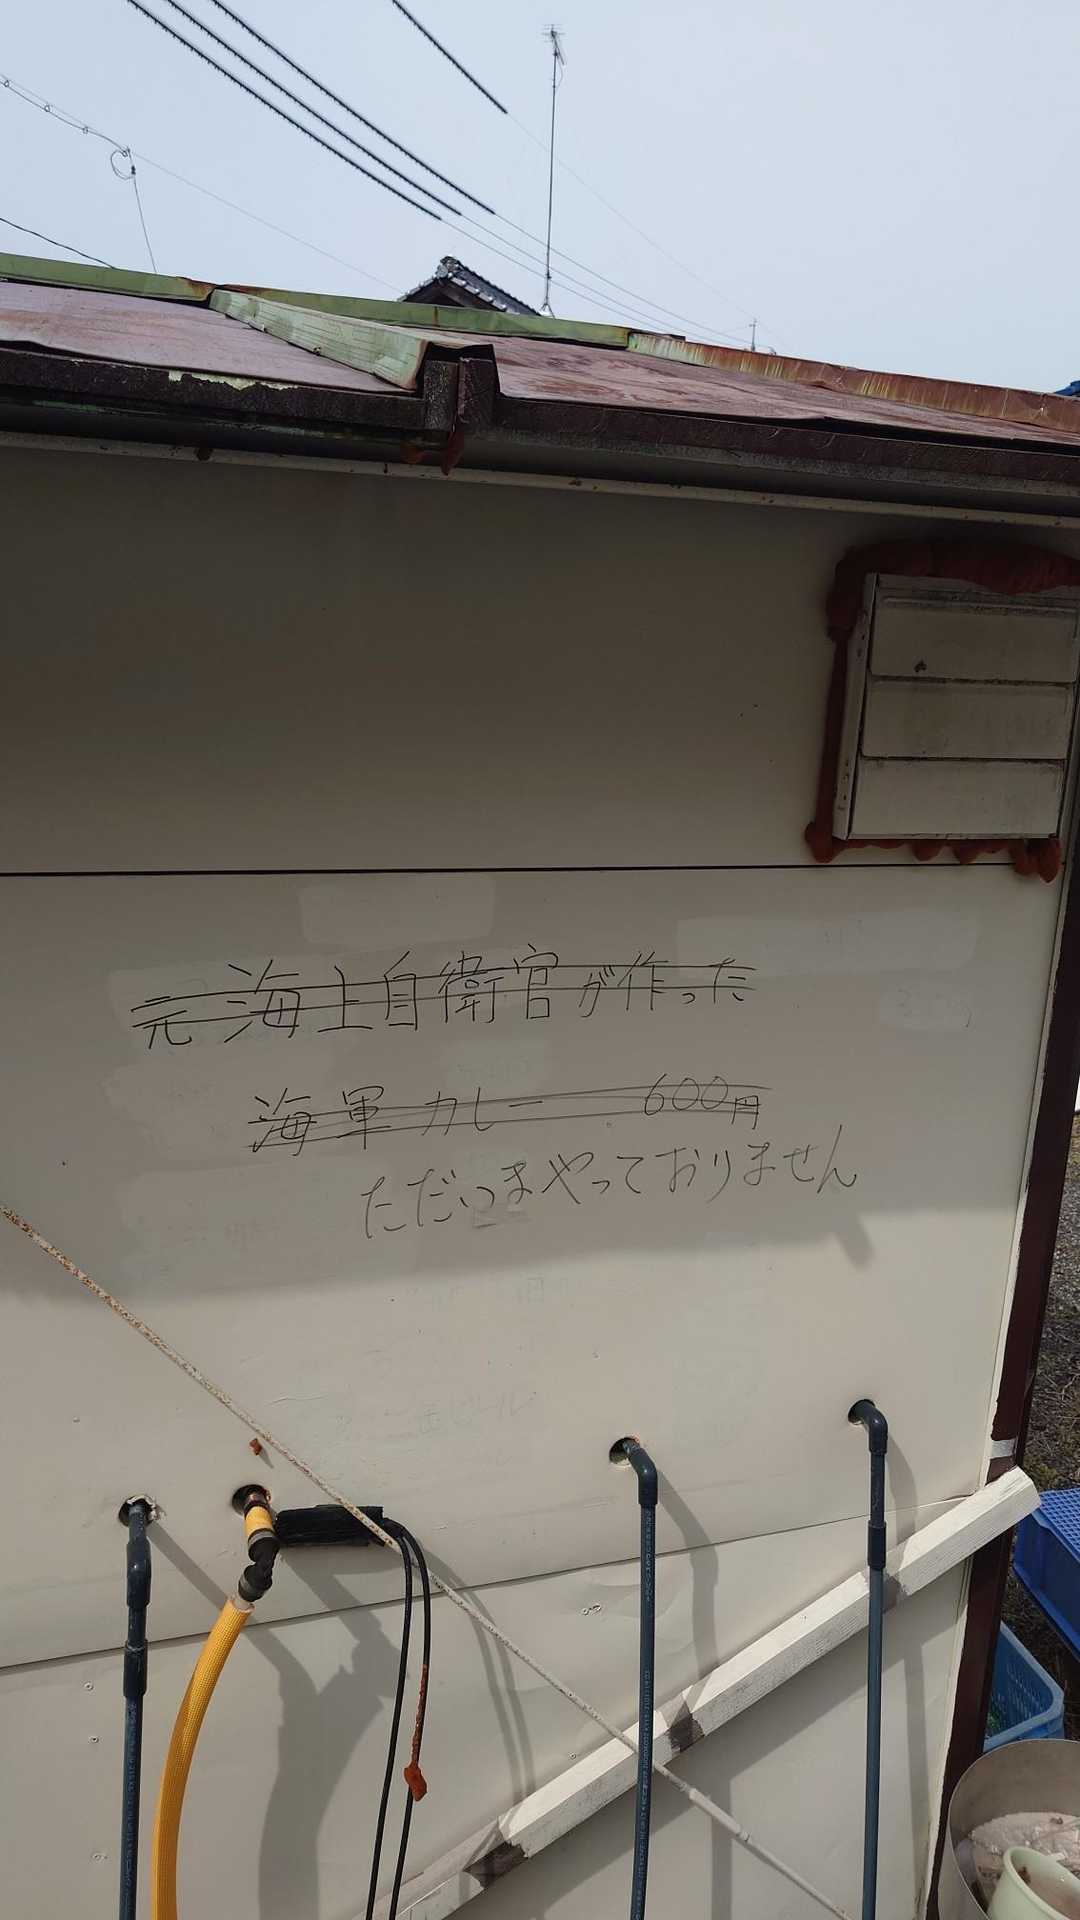 元海上自衛官が作った
海軍カレー 600円
ただいまやっておりません